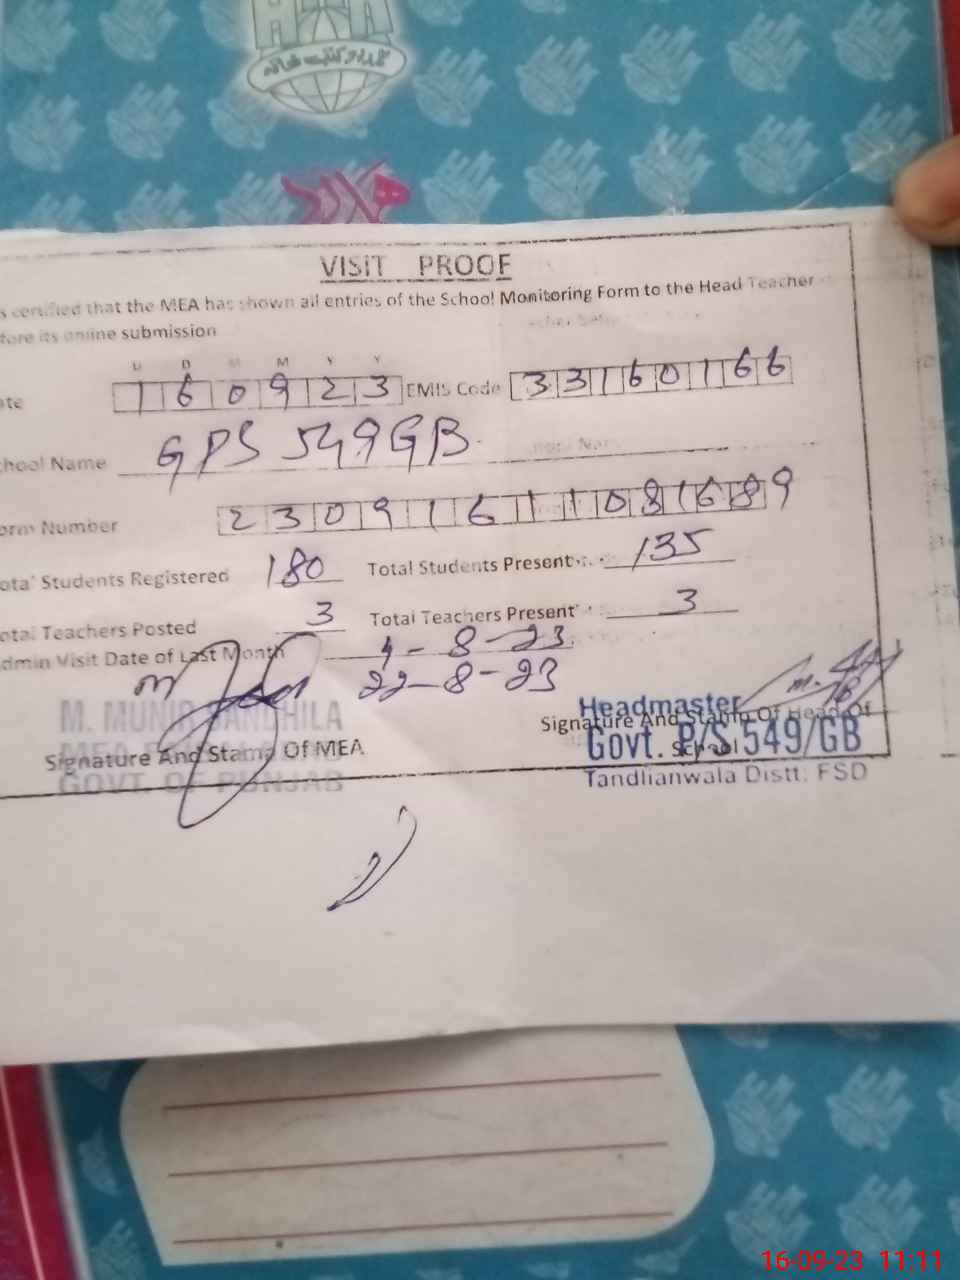 VISIT PROOF
s certified that the MEA has shown all entries of the School Monitoring Form to the Head Teacher
fore its online submission
D D M M Y Y
ate 160923 EMIS Code 33160166
chool Name GPS 549GB
orm Number 23091611081689
otal Students Registered 180 Total Students Present 135
otal Teachers Posted 3 Total Teachers Present 3
dmin Visit Date of Last Month 4-8-23
22-8-23
M. MUNIR
Signature And Stamp Of MEA
GOVT. OF PUNJAB
Headmaster
Signature And Stamp Of Head Of
School
Govt. P/S 549/GB
Tandlianwala Distt: FSD
16-09-23 11:11